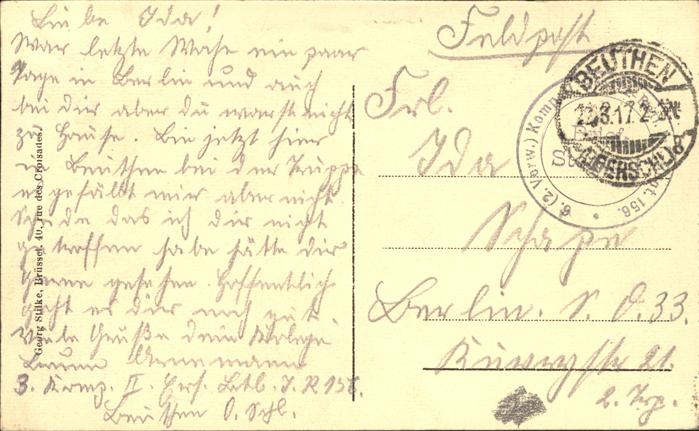 Liebe Ida!
War letzte Woche ein paar
Tage in Berlin und auch
bei dir aber du warst nicht
zu Hause. Bin jetzt hier
in Beuthen bei der Truppe
es gefällt mir aber nicht
Schade das ich dir nicht
getroffen habe hätte dir
gerne gesehen. Hoffentlich
geht es dir noch gut.
Viele Grüße dein Kolege
3. Komp. II. Ers. Batl. I. R 156.
Beuthen O. Schl.
Georg Stilke, Brüssel, 40, rue des Croisades.
Feldpost
BEUTHEN
22.3.17. 2-3N
(OBERSCHL)
6. (2. Verw.) Komp.
156.
Frl.
Ida
Schape
Berlin. S. O. 33.
21.
2. Trp.